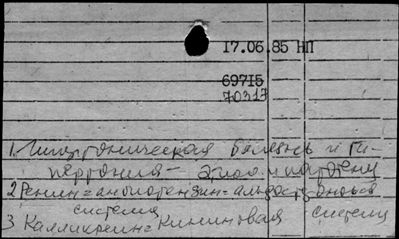 17.06.85 НП
69715
70317
1. Гипертоническая болезнь и ги-
пертония - этиол. и патогенез
2 Ренин=ангиотензин=альдостероновая
система
3 Калликреин=кининовая система